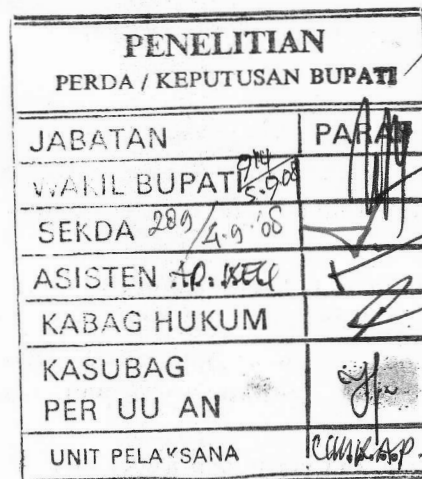 PENELITIAN
PERDA / KEPUTUSAN BUPATI
JABATAN PARAF
WAKIL BUPATI 5-9-08
SEKDA 289/4-9-'08
ASISTEN
KABAG HUKUM
KASUBAG
PER UU AN
UNIT PELAKSANA